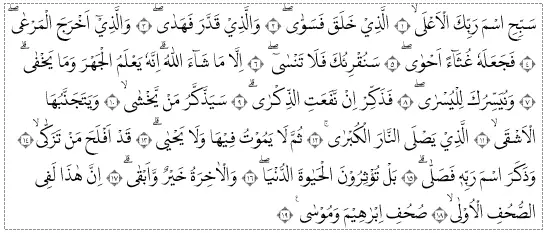 سَبِّحِ اسْمَ رَبِّكَ الْاَعْلَىۙ ۝١ الَّذِيْ خَلَقَ فَسَوّٰىۖ ۝٢ وَالَّذِيْ قَدَّرَ فَهَدٰىۖ ۝٣ وَالَّذِيْٓ اَخْرَجَ الْمَرْعٰىۖ
۝٤ فَجَعَلَهٗ غُثَاۤءً اَحْوٰىۖ ۝٥ سَنُقْرِئُكَ فَلَا تَنْسٰىٓۖ ۝٦ اِلَّا مَا شَاۤءَ اللّٰهُۗ اِنَّهٗ يَعْلَمُ الْجَهْرَ وَمَا يَخْفٰىۗ
۝٧ وَنُيَسِّرُكَ لِلْيُسْرٰىۖ ۝٨ فَذَكِّرْ اِنْ نَّفَعَتِ الذِّكْرٰىۗ ۝٩ سَيَذَّكَّرُ مَنْ يَّخْشٰىۙ ۝١٠ وَيَتَجَنَّبُهَا
الْاَشْقَىۙ ۝١١ الَّذِيْ يَصْلَى النَّارَ الْكُبْرٰىۚ ۝١٢ ثُمَّ لَا يَمُوْتُ فِيْهَا وَلَا يَحْيٰىۗ ۝١٣ قَدْ اَفْلَحَ مَنْ تَزَكّٰىۙ ۝١٤
وَذَكَرَ اسْمَ رَبِّهٖ فَصَلّٰىۗ ۝١٥ بَلْ تُؤْثِرُوْنَ الْحَيٰوةَ الدُّنْيَاۖ ۝١٦ وَالْاٰخِرَةُ خَيْرٌ وَّاَبْقٰىۗ ۝١٧ اِنَّ هٰذَا لَفِى
الصُّحُفِ الْاُوْلٰىۙ ۝١٨ صُحُفِ اِبْرٰهِيْمَ وَمُوْسٰىࣖ ۝١٩